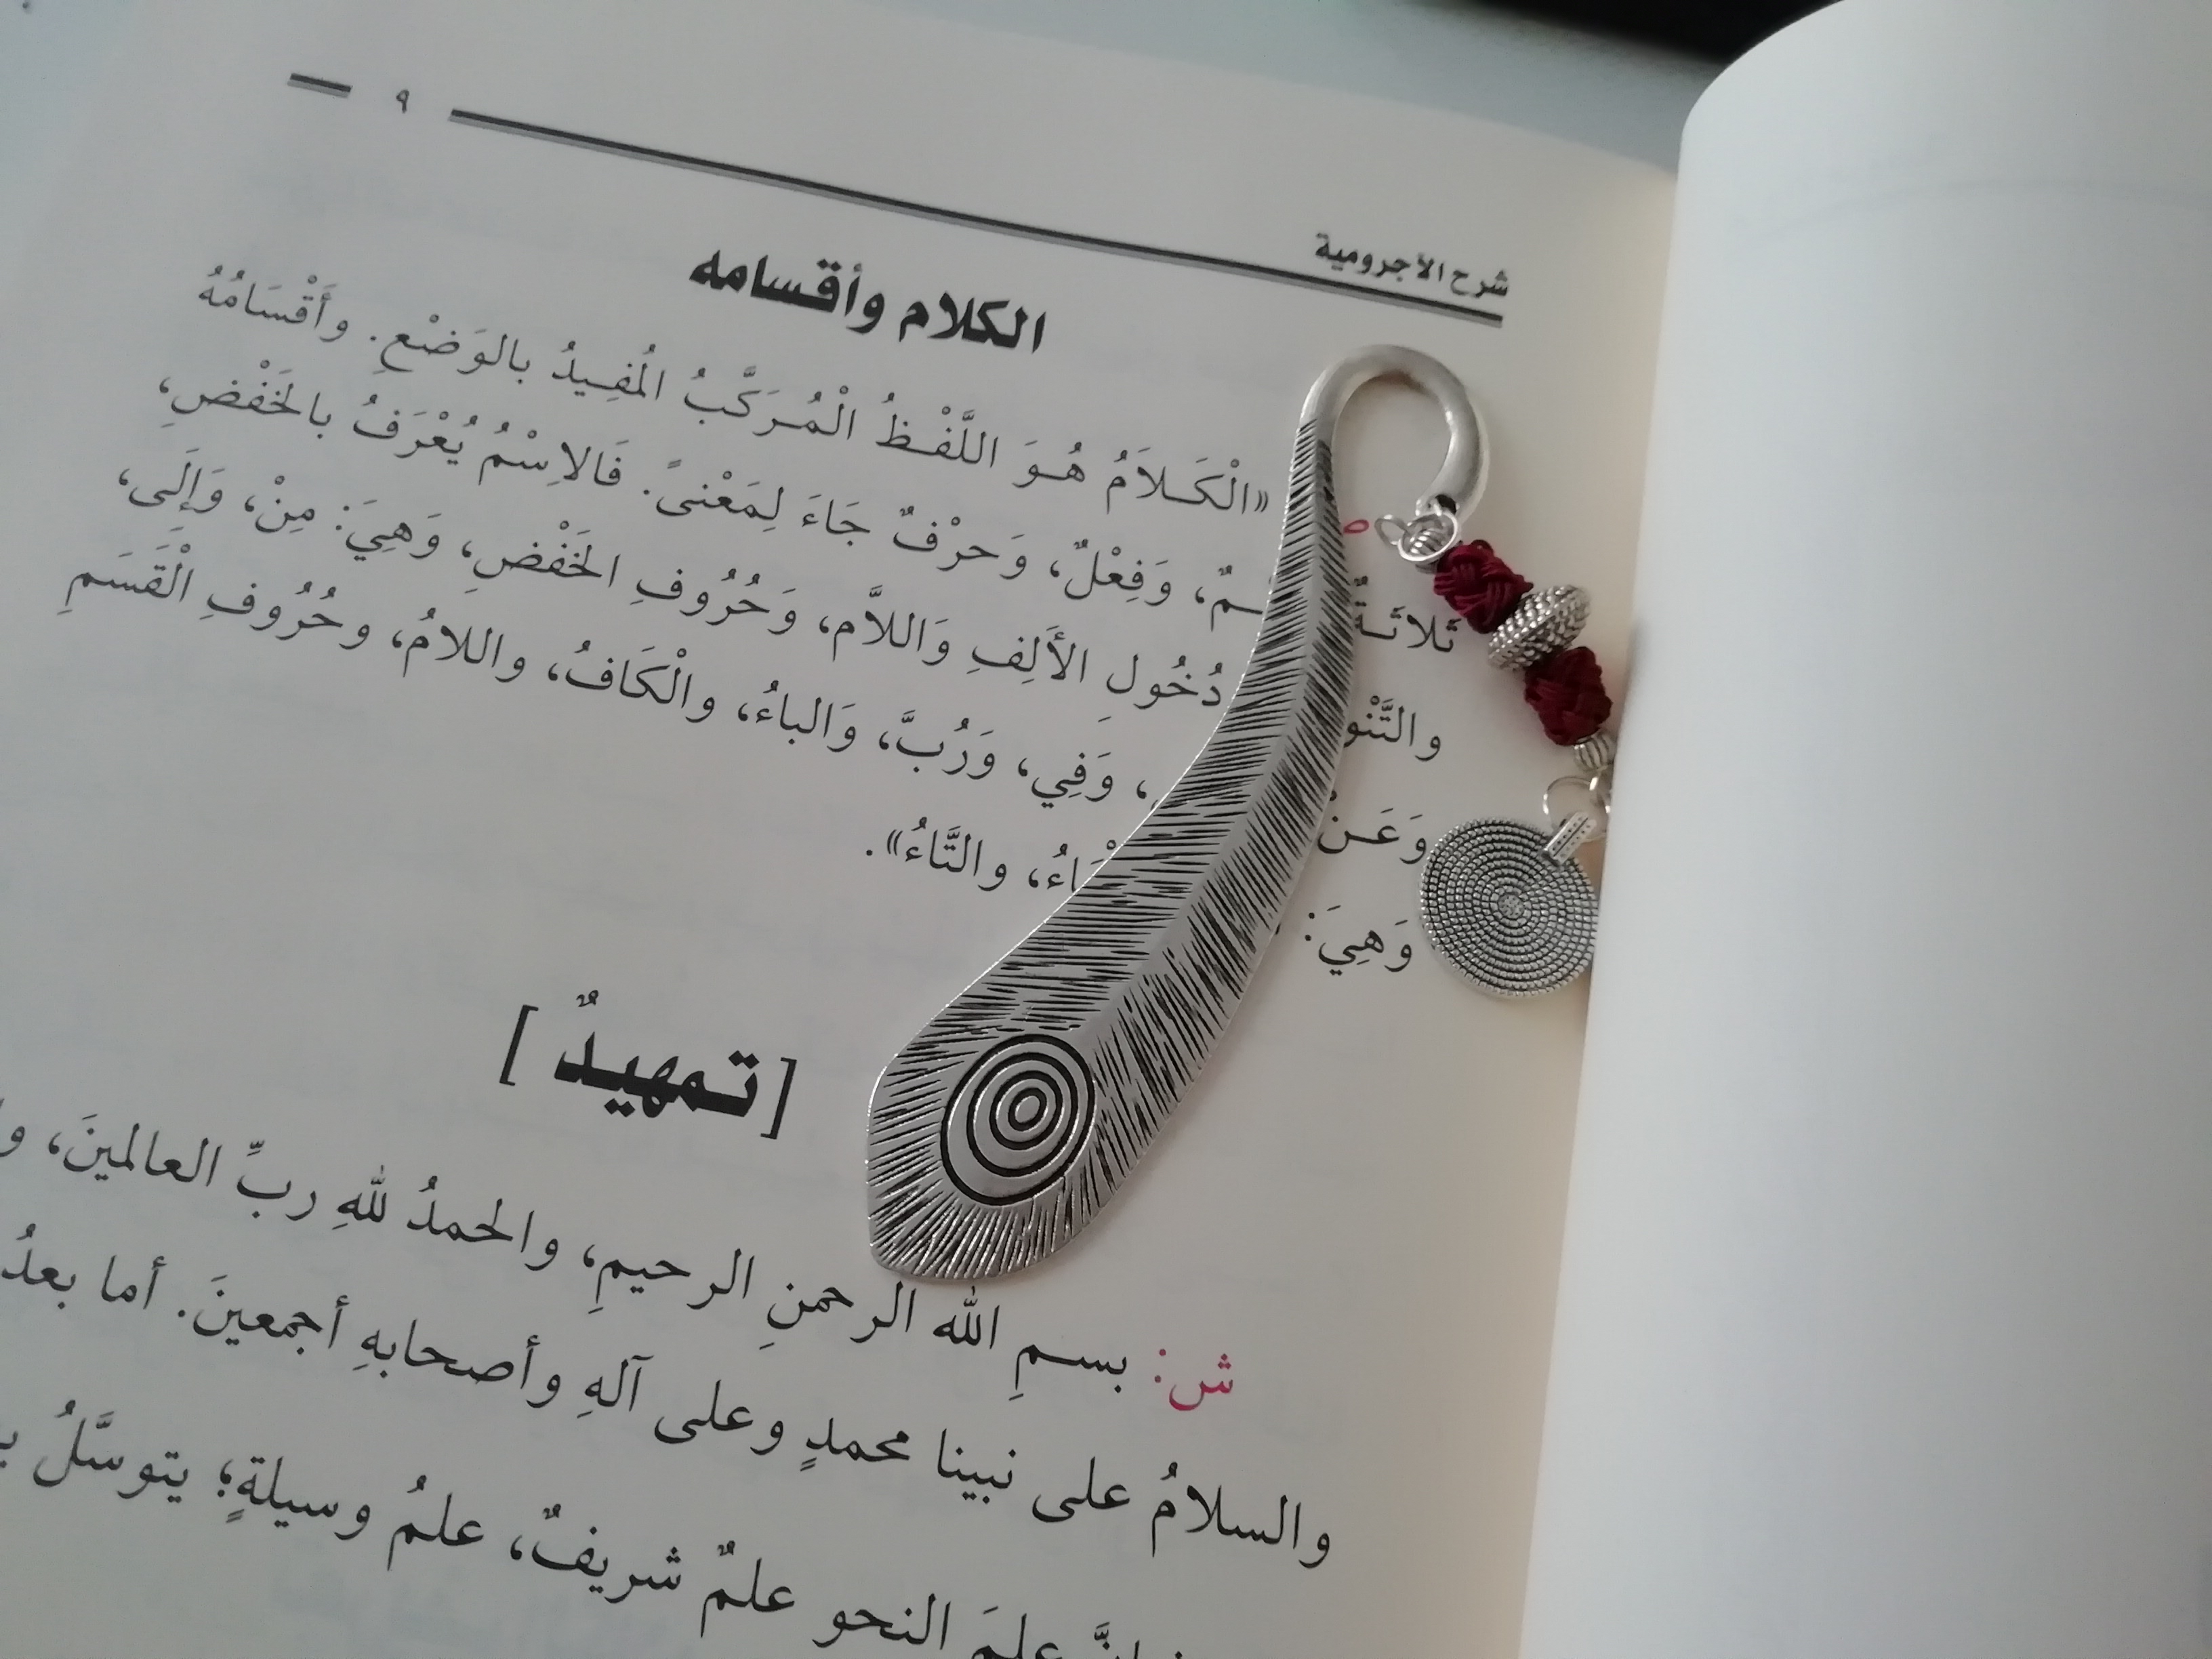 شرح الآجرومية
٩
الكلام وأقسامه
«الْكَـلاَمُ هُـوَ اللَّفْـظُ الْمُـرَكَّبُ المُفِـيدُ بالوَضْعِ. وأَقْسَامُهُ
ثَلاثَـةٌ وَفِعْلٌ، وَحرْفٌ جَاءَ لِمَعْنىً. فَالاِسْمُ يُعْرَفُ بالخَفْضِ،
دُخُولِ الأَلِفِ وَاللاَّم، وَحُرُوفِ الخَفْضِ، وَهِيَ: مِنْ، وَإِلَى،
وَعَـنْ وَفِي، وَرُبَّ، وَالباءُ، والْكَافُ، واللامُ، وحُرُوفِ الْقَسَمِ
وَهِيَ: والتَّاءُ».
[تمهيدٌ]
ش: بسـمِ الله الرحمنِ الرحيمِ، والحمدُ للهِ ربِّ العالمينَ،
والسلامُ على نبينا محمدٍ وعلى آلهِ وأصحابهِ أجمعينَ. أما بعدُ
علمَ النحو علمٌ شريفٌ، علمُ وسيلةٍ؛ يتوسَّلُ